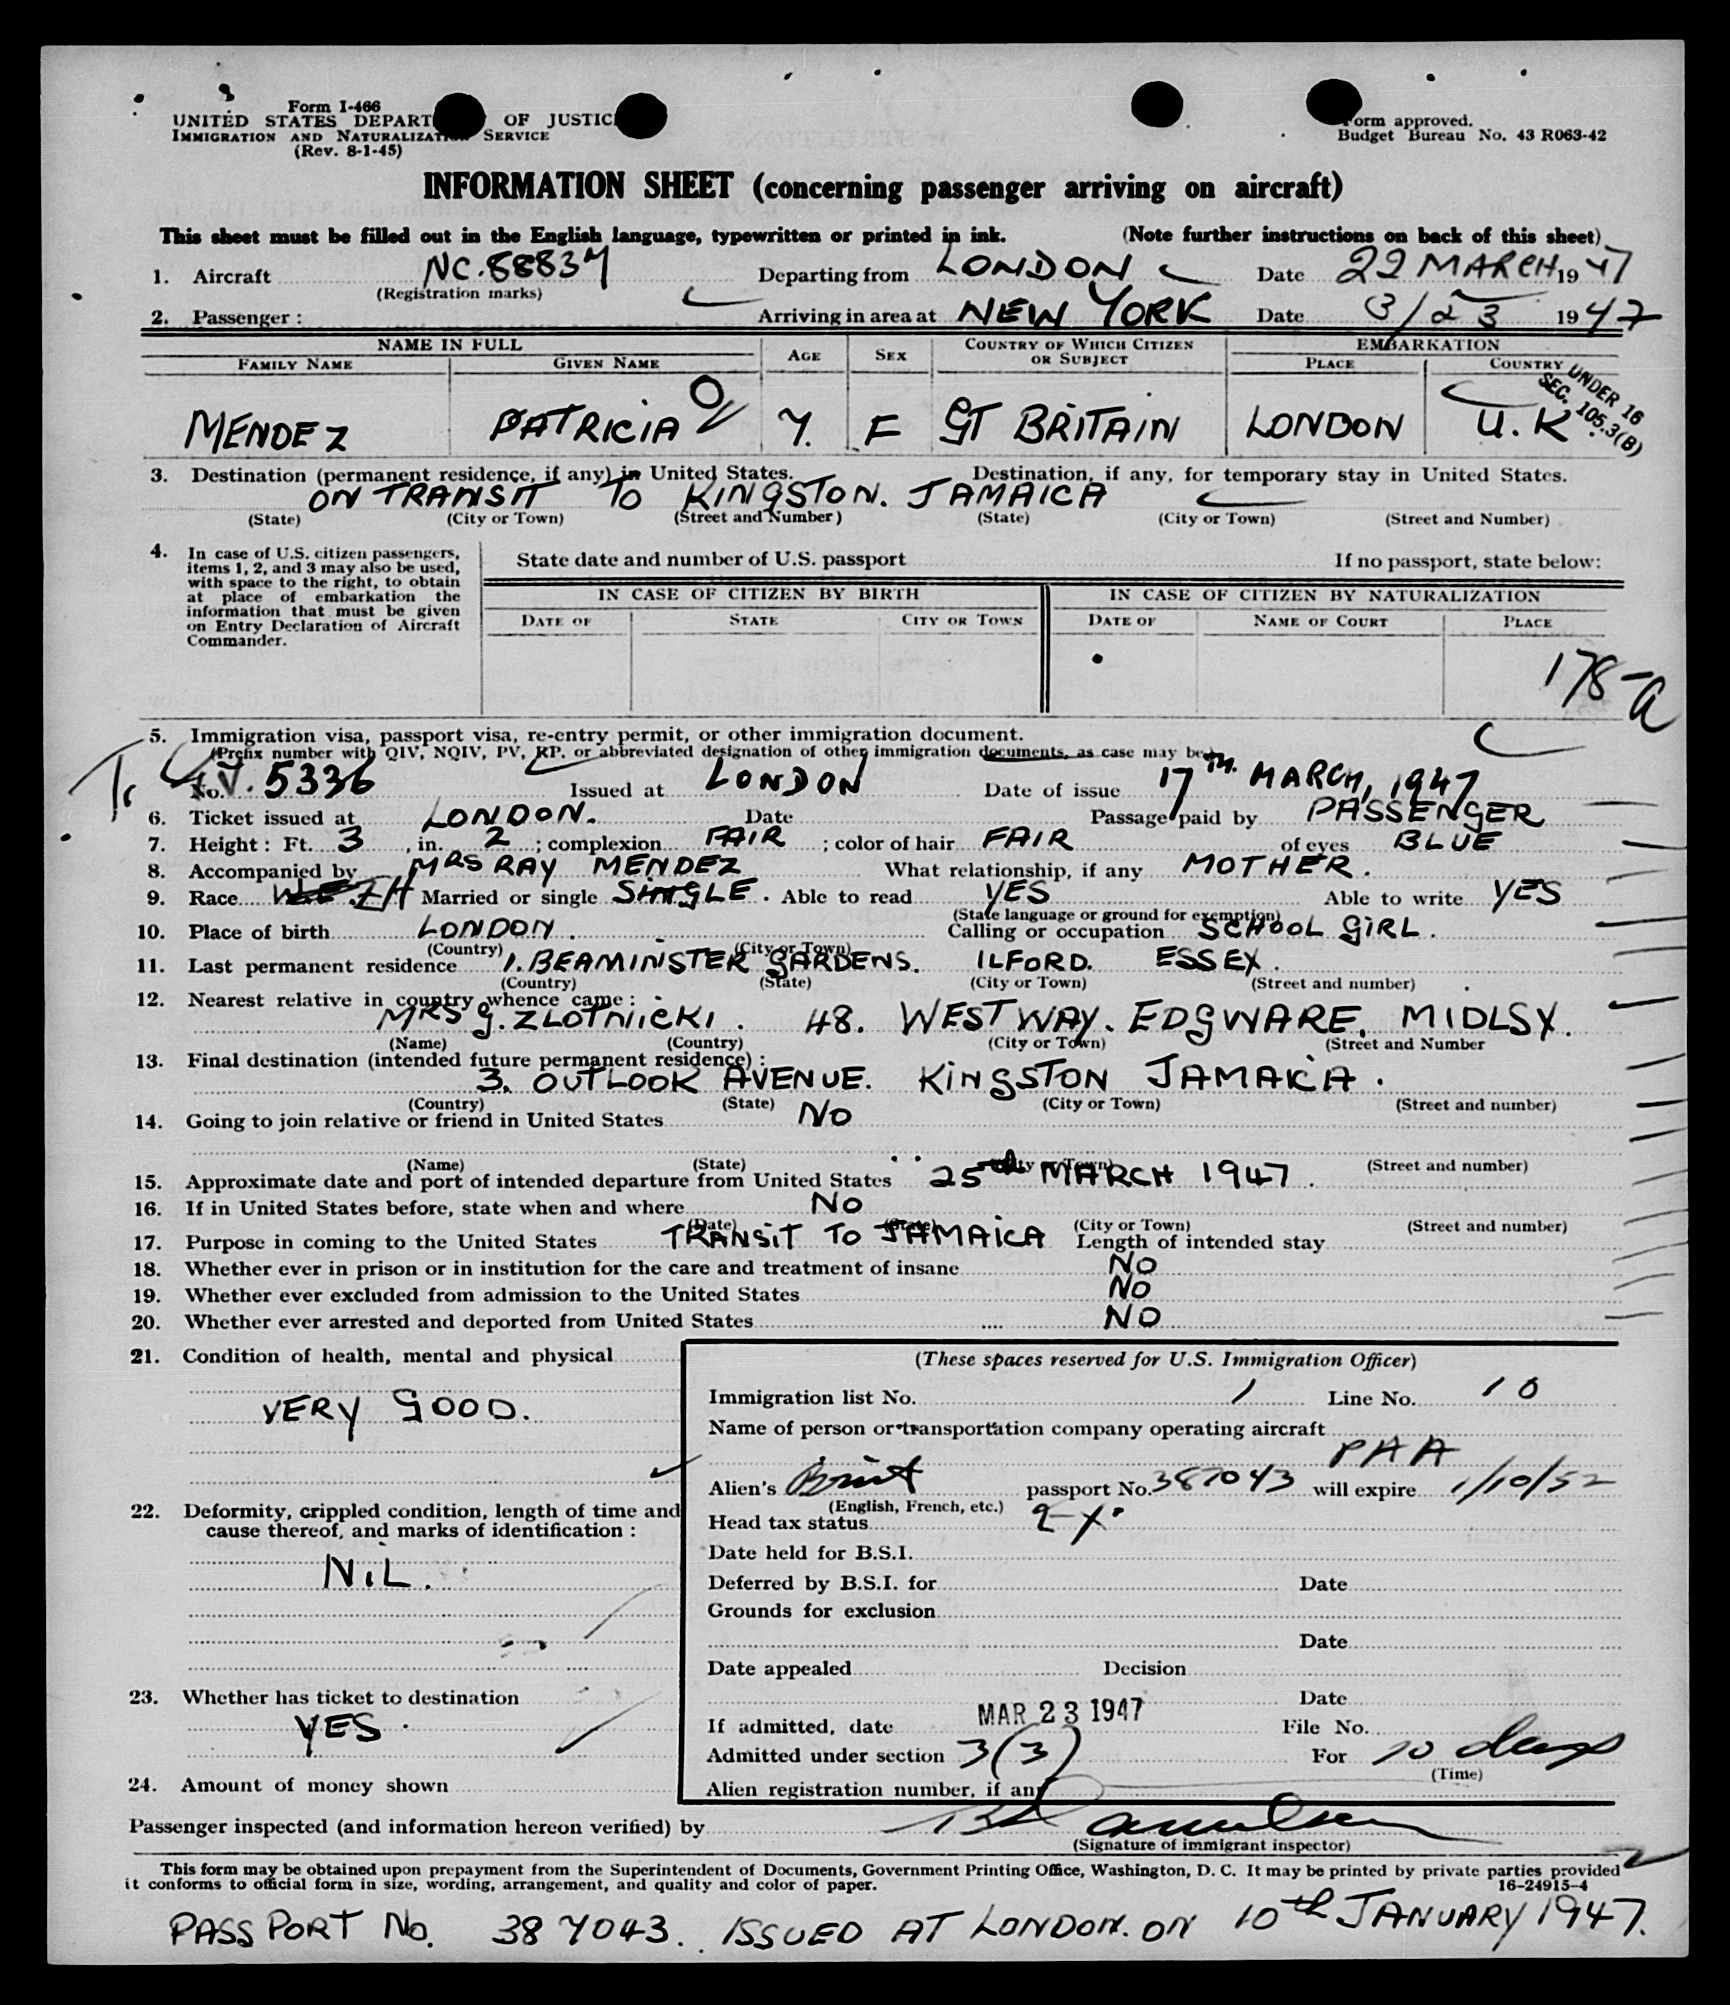 Form I-466
UNITED STATES DEPART OF JUSTIC
IMMIGRATION AND NATURALIZATION SERVICE
(Rev. 8-1-45)
Form approved.
Budget Bureau No. 43 R063-42
INFORMATION SHEET (concerning passenger arriving on aircraft)
This sheet must be filled out in the English language, typewritten or printed in ink. (Note further instructions on back of this sheet)
1. Aircraft NC.88837 Departing from LONDON Date 22 MARCH 1947
(Registration marks)
2. Passenger: Arriving in area at NEW YORK Date 3/23 1947
NAME IN FULL AGE SEX COUNTRY OF WHICH CITIZEN OR SUBJECT EMBARKATION
FAMILY NAME GIVEN NAME PLACE COUNTRY
UNDER 16
SEC. 105.3(B)
MENDEZ PATRICIA 7. F GT BRITAIN LONDON U.K.
3. Destination (permanent residence, if any) in United States. Destination, if any, for temporary stay in United States.
ON TRANSIT TO KINGSTON. JAMAICA
(State) (City or Town) (Street and Number) (State) (City or Town) (Street and Number)
4. In case of U.S. citizen passengers, items 1, 2, and 3 may also be used, with space to the right, to obtain at place of embarkation the information that must be given on Entry Declaration of Aircraft Commander.
State date and number of U.S. passport If no passport, state below:
IN CASE OF CITIZEN BY BIRTH IN CASE OF CITIZEN BY NATURALIZATION
DATE OF STATE CITY OR TOWN DATE OF NAME OF COURT PLACE
178-a
5. Immigration visa, passport visa, re-entry permit, or other immigration document.
(Prefix number with QIV, NQIV, PV, RP. or abbreviated designation of other immigration documents, as case may be.)
Tr
No. T.V. 5336 Issued at LONDON Date of issue 17th. MARCH, 1947
6. Ticket issued at LONDON. Date Passage paid by PASSENGER
7. Height: Ft. 3, in. 2; complexion FAIR; color of hair FAIR of eyes BLUE
8. Accompanied by MRS RAY MENDEZ What relationship, if any MOTHER.
9. Race Married or single SINGLE. Able to read YES Able to write YES
(State language or ground for exemption)
10. Place of birth LONDON. Calling or occupation SCHOOL GIRL.
(Country) (City or Town)
11. Last permanent residence 1. BEAMINSTER GARDENS. ILFORD. ESSEX.
(Country) (State) (City or Town) (Street and number)
12. Nearest relative in country whence came:
MRS G. ZLOTNICKI. 48. WESTWAY. EDGWARE. MIDLSX.
(Name) (Country) (City or Town) (Street and Number
13. Final destination (intended future permanent residence):
3. OUTLOOK AVENUE. KINGSTON JAMAICA.
(Country) (State) (City or Town) (Street and number)
14. Going to join relative or friend in United States NO
(Name) (State) (City or Town) (Street and number)
15. Approximate date and port of intended departure from United States 25th MARCH 1947.
16. If in United States before, state when and where NO
(Date) (State) (City or Town) (Street and number)
17. Purpose in coming to the United States TRANSIT TO JAMAICA Length of intended stay
18. Whether ever in prison or in institution for the care and treatment of insane NO
19. Whether ever excluded from admission to the United States NO
20. Whether ever arrested and deported from United States NO
21. Condition of health, mental and physical
VERY GOOD.
22. Deformity, crippled condition, length of time and
cause thereof, and marks of identification:
NIL.
23. Whether has ticket to destination
YES.
24. Amount of money shown
(These spaces reserved for U.S. Immigration Officer)
Immigration list No. 1 Line No. 10
Name of person or transportation company operating aircraft
PAA
Alien's Brit passport No. 387043 will expire 1/10/52
(English, French, etc.)
Head tax status
Date held for B.S.I.
Deferred by B.S.I. for Date
Grounds for exclusion
Date
Date appealed Decision
Date
If admitted, date MAR 23 1947 File No.
Admitted under section 3(3) For 10 days
(Time)
Alien registration number, if any
Passenger inspected (and information hereon verified) by
(Signature of immigrant inspector)
This form may be obtained upon prepayment from the Superintendent of Documents, Government Printing Office, Washington, D. C. It may be printed by private parties provided
it conforms to official form in size, wording, arrangement, and quality and color of paper. 16-24915-4
PASSPORT NO. 387043. ISSUED AT LONDON. ON 10th JANUARY 1947.